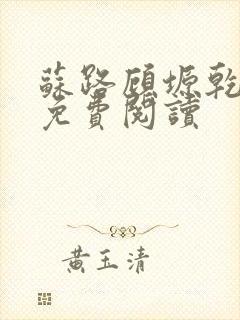 蘇路顧塬乾
免費閱讀
黃玉清